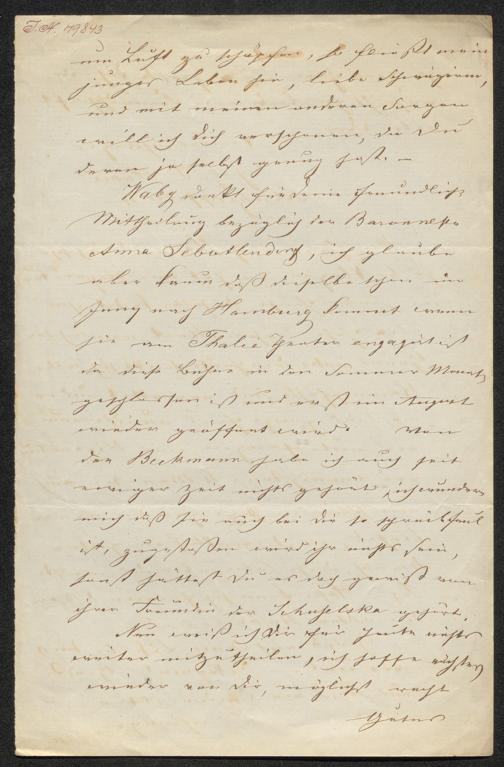 J.N. 79843
um Luft zu schöpfen, so fließt mein
junges Leben hin, liebe Schwägerin,
und mit meinen anderen Sorgen
will ich Dich verschonen, da Du
deren ja selbst genug hast. –
Waby dankt für Deine freundliche
Mittheilung bezüglich der Baronesse
Anna Sebottendorf, ich glaube
aber kaum daß dieselbe schon im
Juny nach Hamburg kommt wenn
sie am Thalia Theater engagirt ist
da diese Bühne in den Sommer Monat
geschlossen ist und erst im August
wieder geöffnet wird. Von
der Beckmann habe ich auch seit
einiger Zeit nichts gehört, ich wundere
mich daß sie auch bei Dir so schreibfaul
ist, zugestoßen wird ihr nichts sein,
sonst hättest Du es doch gewiß von
ihrer Freundin der Schuselka gehört.
Nun weiß ich Dir für heute nichts
weiter mitzutheilen, ich hoffe nächstens
wieder von Dir, möglichst recht
Gutes